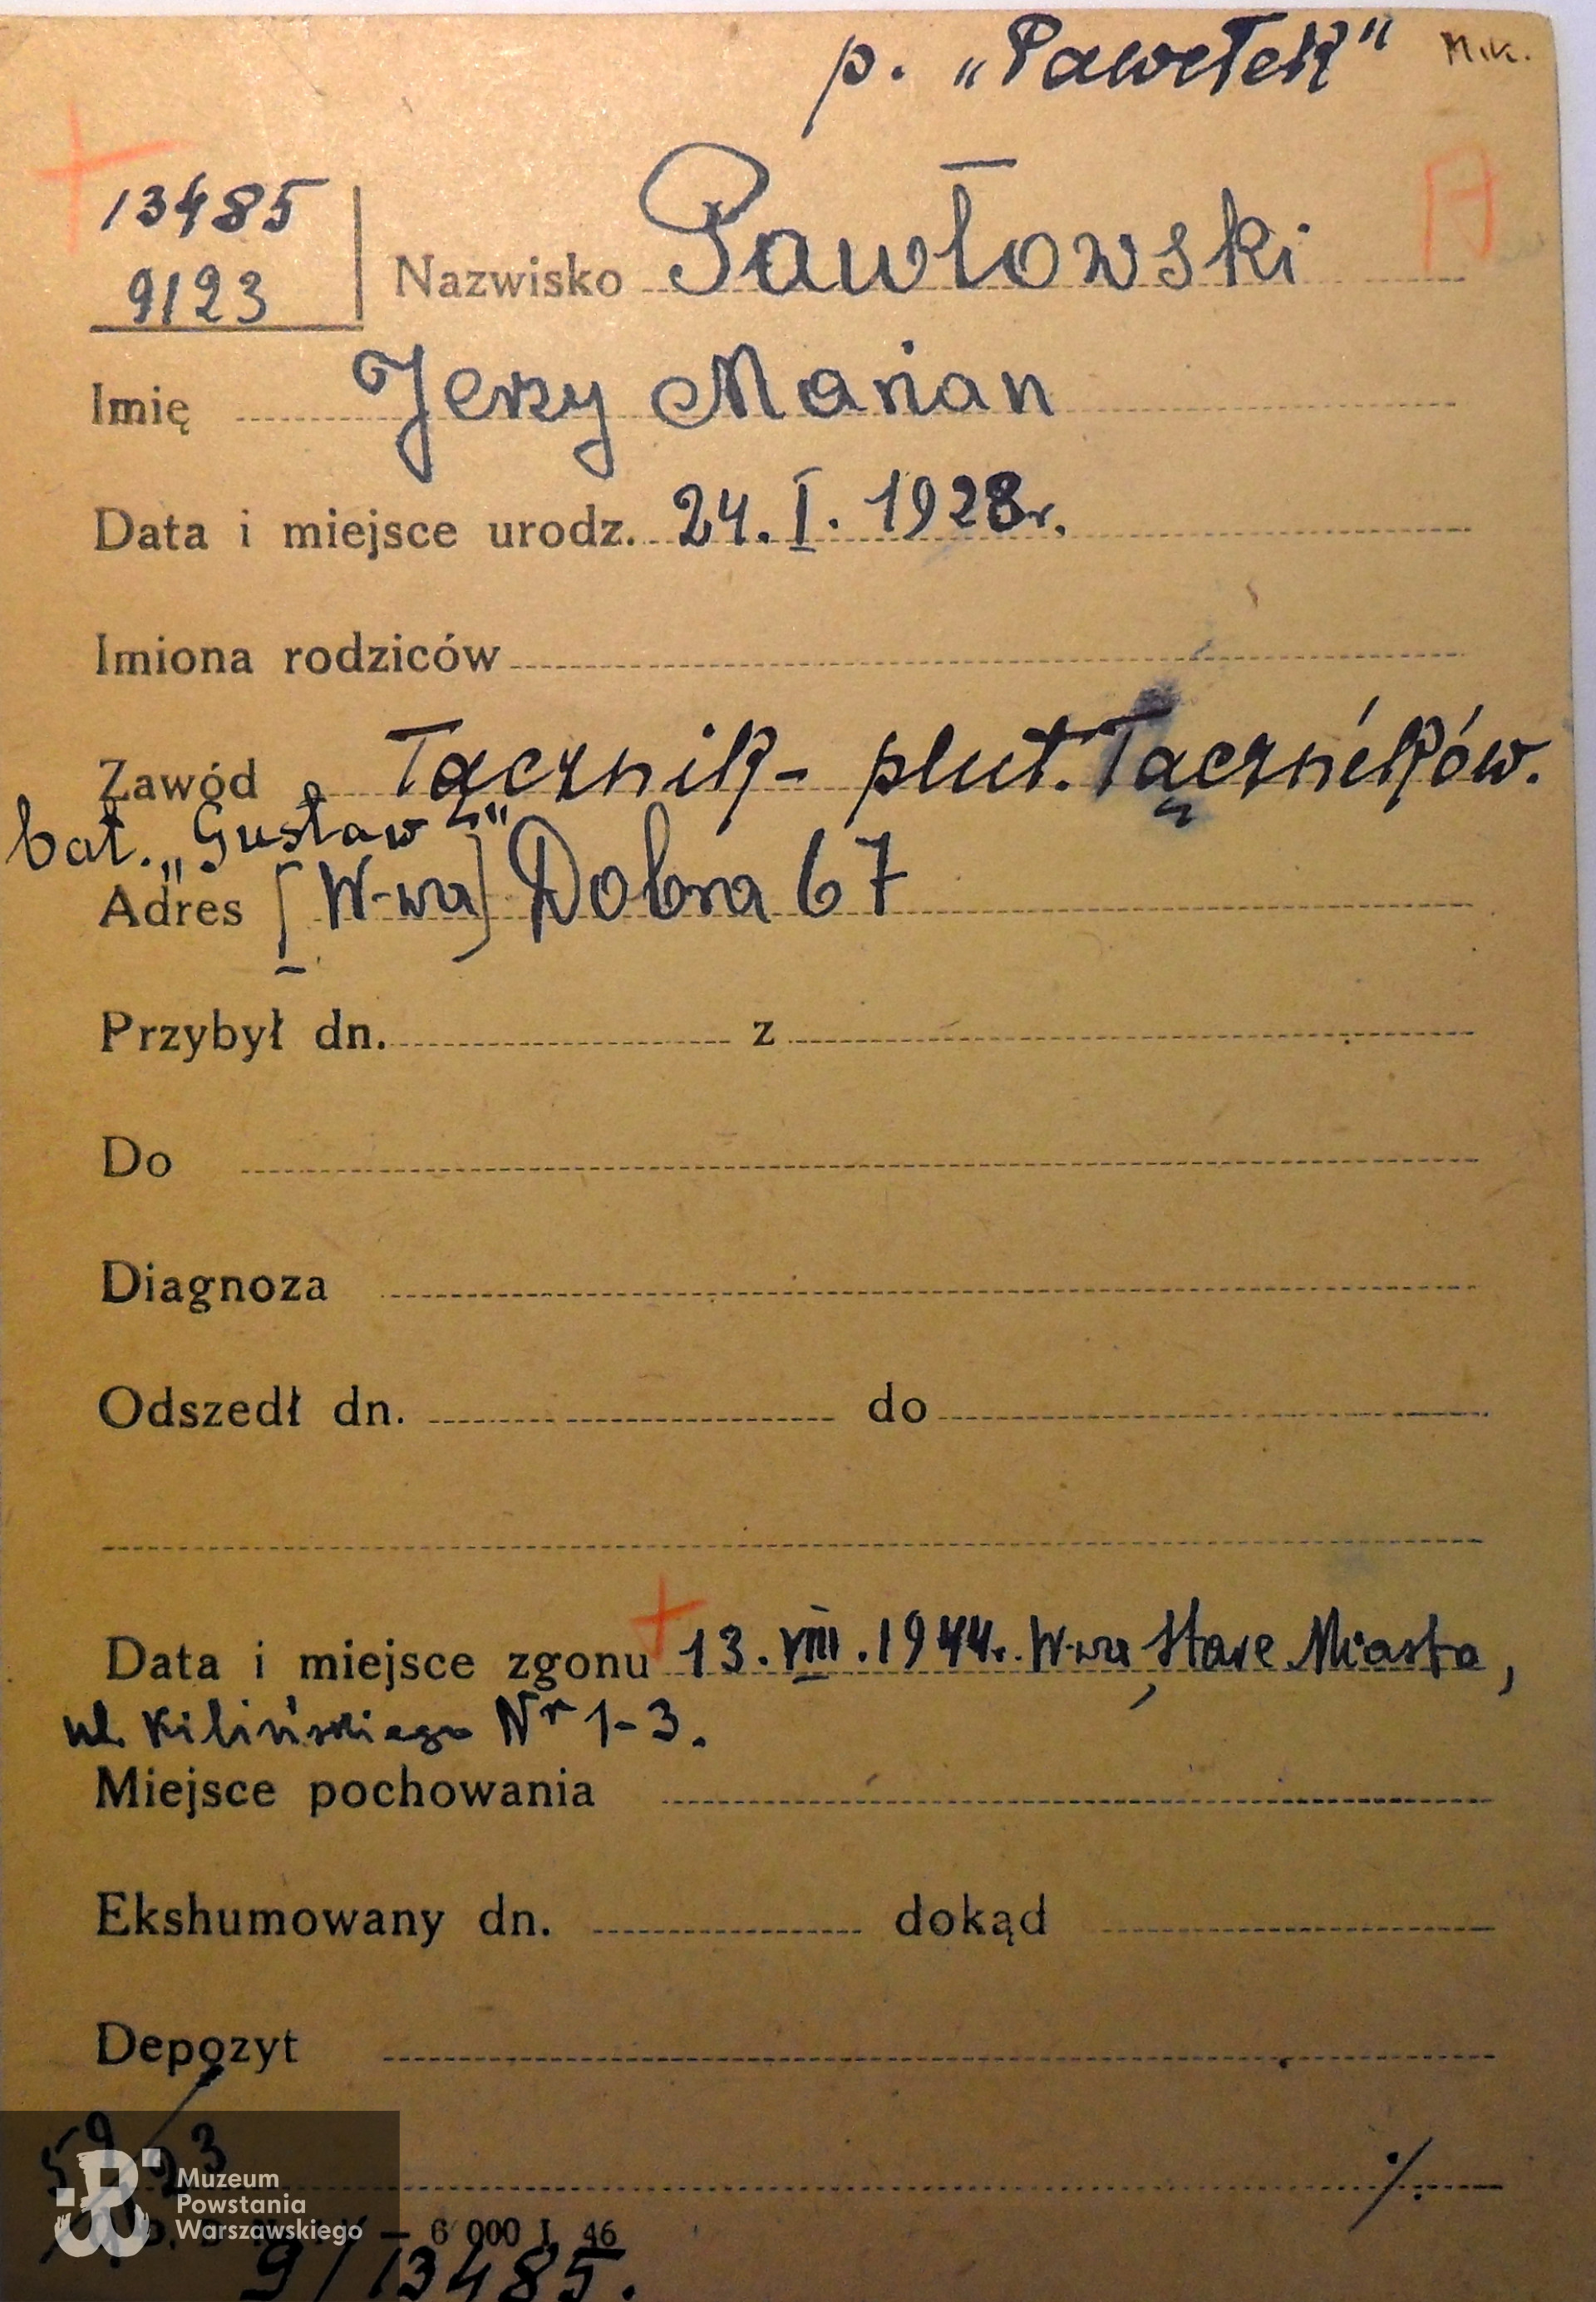 p. „Pawełek"
M.k.
A
13485
9/23
Nazwisko Pawłowski
Imię Jerzy Marian
Data i miejsce urodz. 24. I. 1928r.
Imiona rodziców
Zawód Łącznik - plut. Łączników.
bat. „Gustaw"
Adres [W-wa] Dobra 67
Przybył dn. z
Do
Diagnoza
Odszedł dn. do
Data i miejsce zgonu 13. VIII. 1944r. W-wa, Stare Miasto,
ul. Kilińskiego Nr 1-3.
Miejsce pochowania
Ekshumowany dn. dokąd
Depozyt
./.
Muzeum
Powstania
Warszawskiego
— 6 000 I. 46
9/13485.